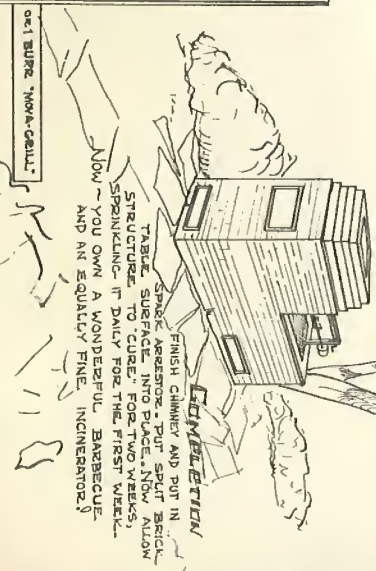 COMPLETION
FINISH CHIMNEY AND PUT IN
SPARK ARRESTOR. PUT SPLIT BRICK
TABLE SURFACE INTO PLACE. NOW ALLOW
STRUCTURE TO "CURE" FOR TWO WEEKS,
SPRINKLING IT DAILY FOR THE FIRST WEEK.
NOW ~ YOU OWN A WONDERFUL BARBECUE
AND AN EQUALLY FINE INCINERATOR!
OR 1 BURR "MOYA-GRILL"